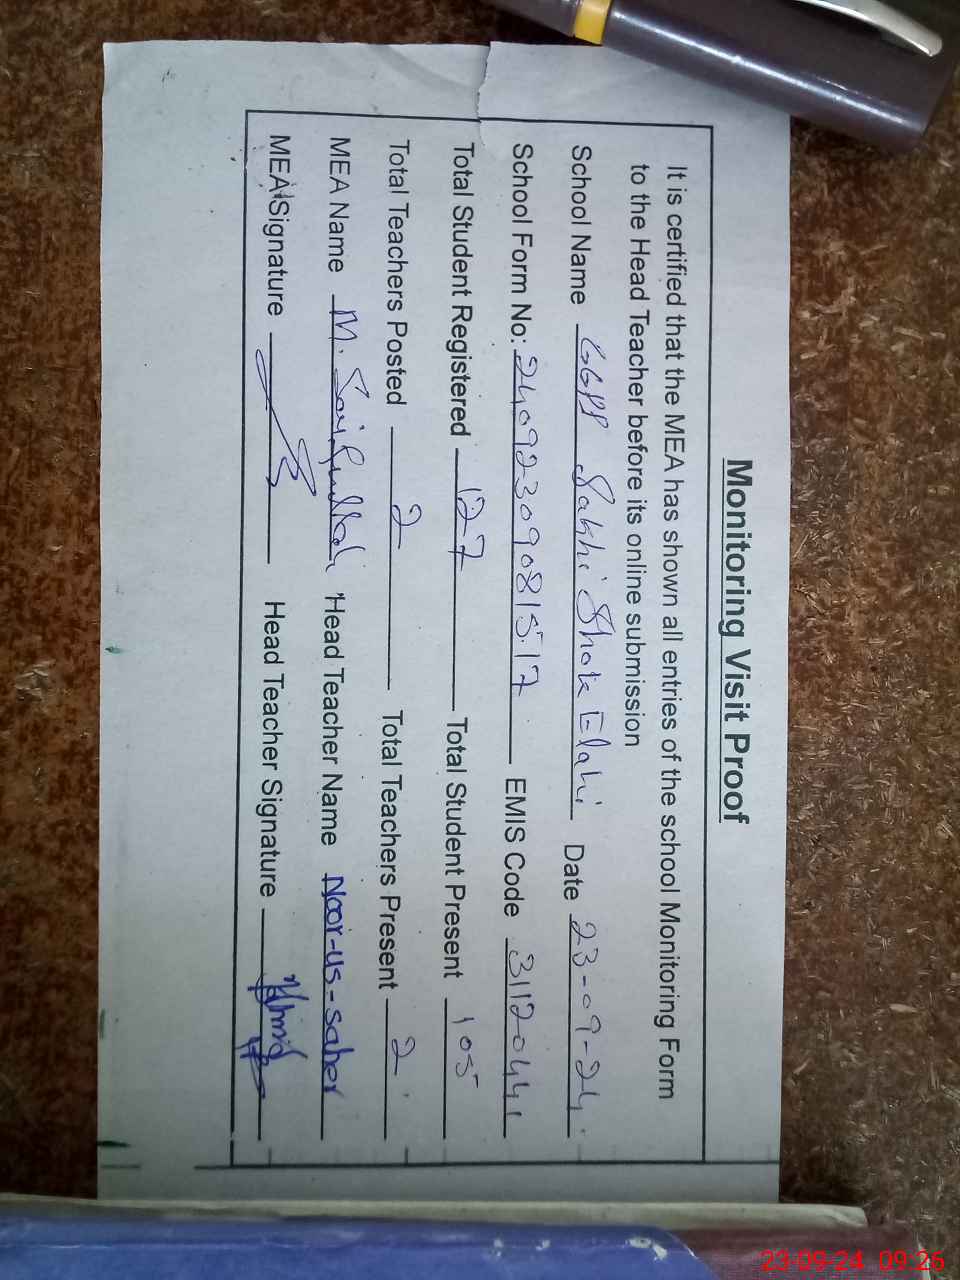 Monitoring Visit Proof
It is certified that the MEA has shown all entries of the school Monitoring Form
to the Head Teacher before its online submission
School Name GGPS Sakhi Shok Elahi Date 23-09-24
School Form No: 24092309081517 EMIS Code 31120441
Total Student Registered 127 Total Student Present 105
Total Teachers Posted 2 Total Teachers Present 2
MEA Name M. Saifullah Head Teacher Name Noor-us-saher
MEA Signature Head Teacher Signature
23-09-24 09:26